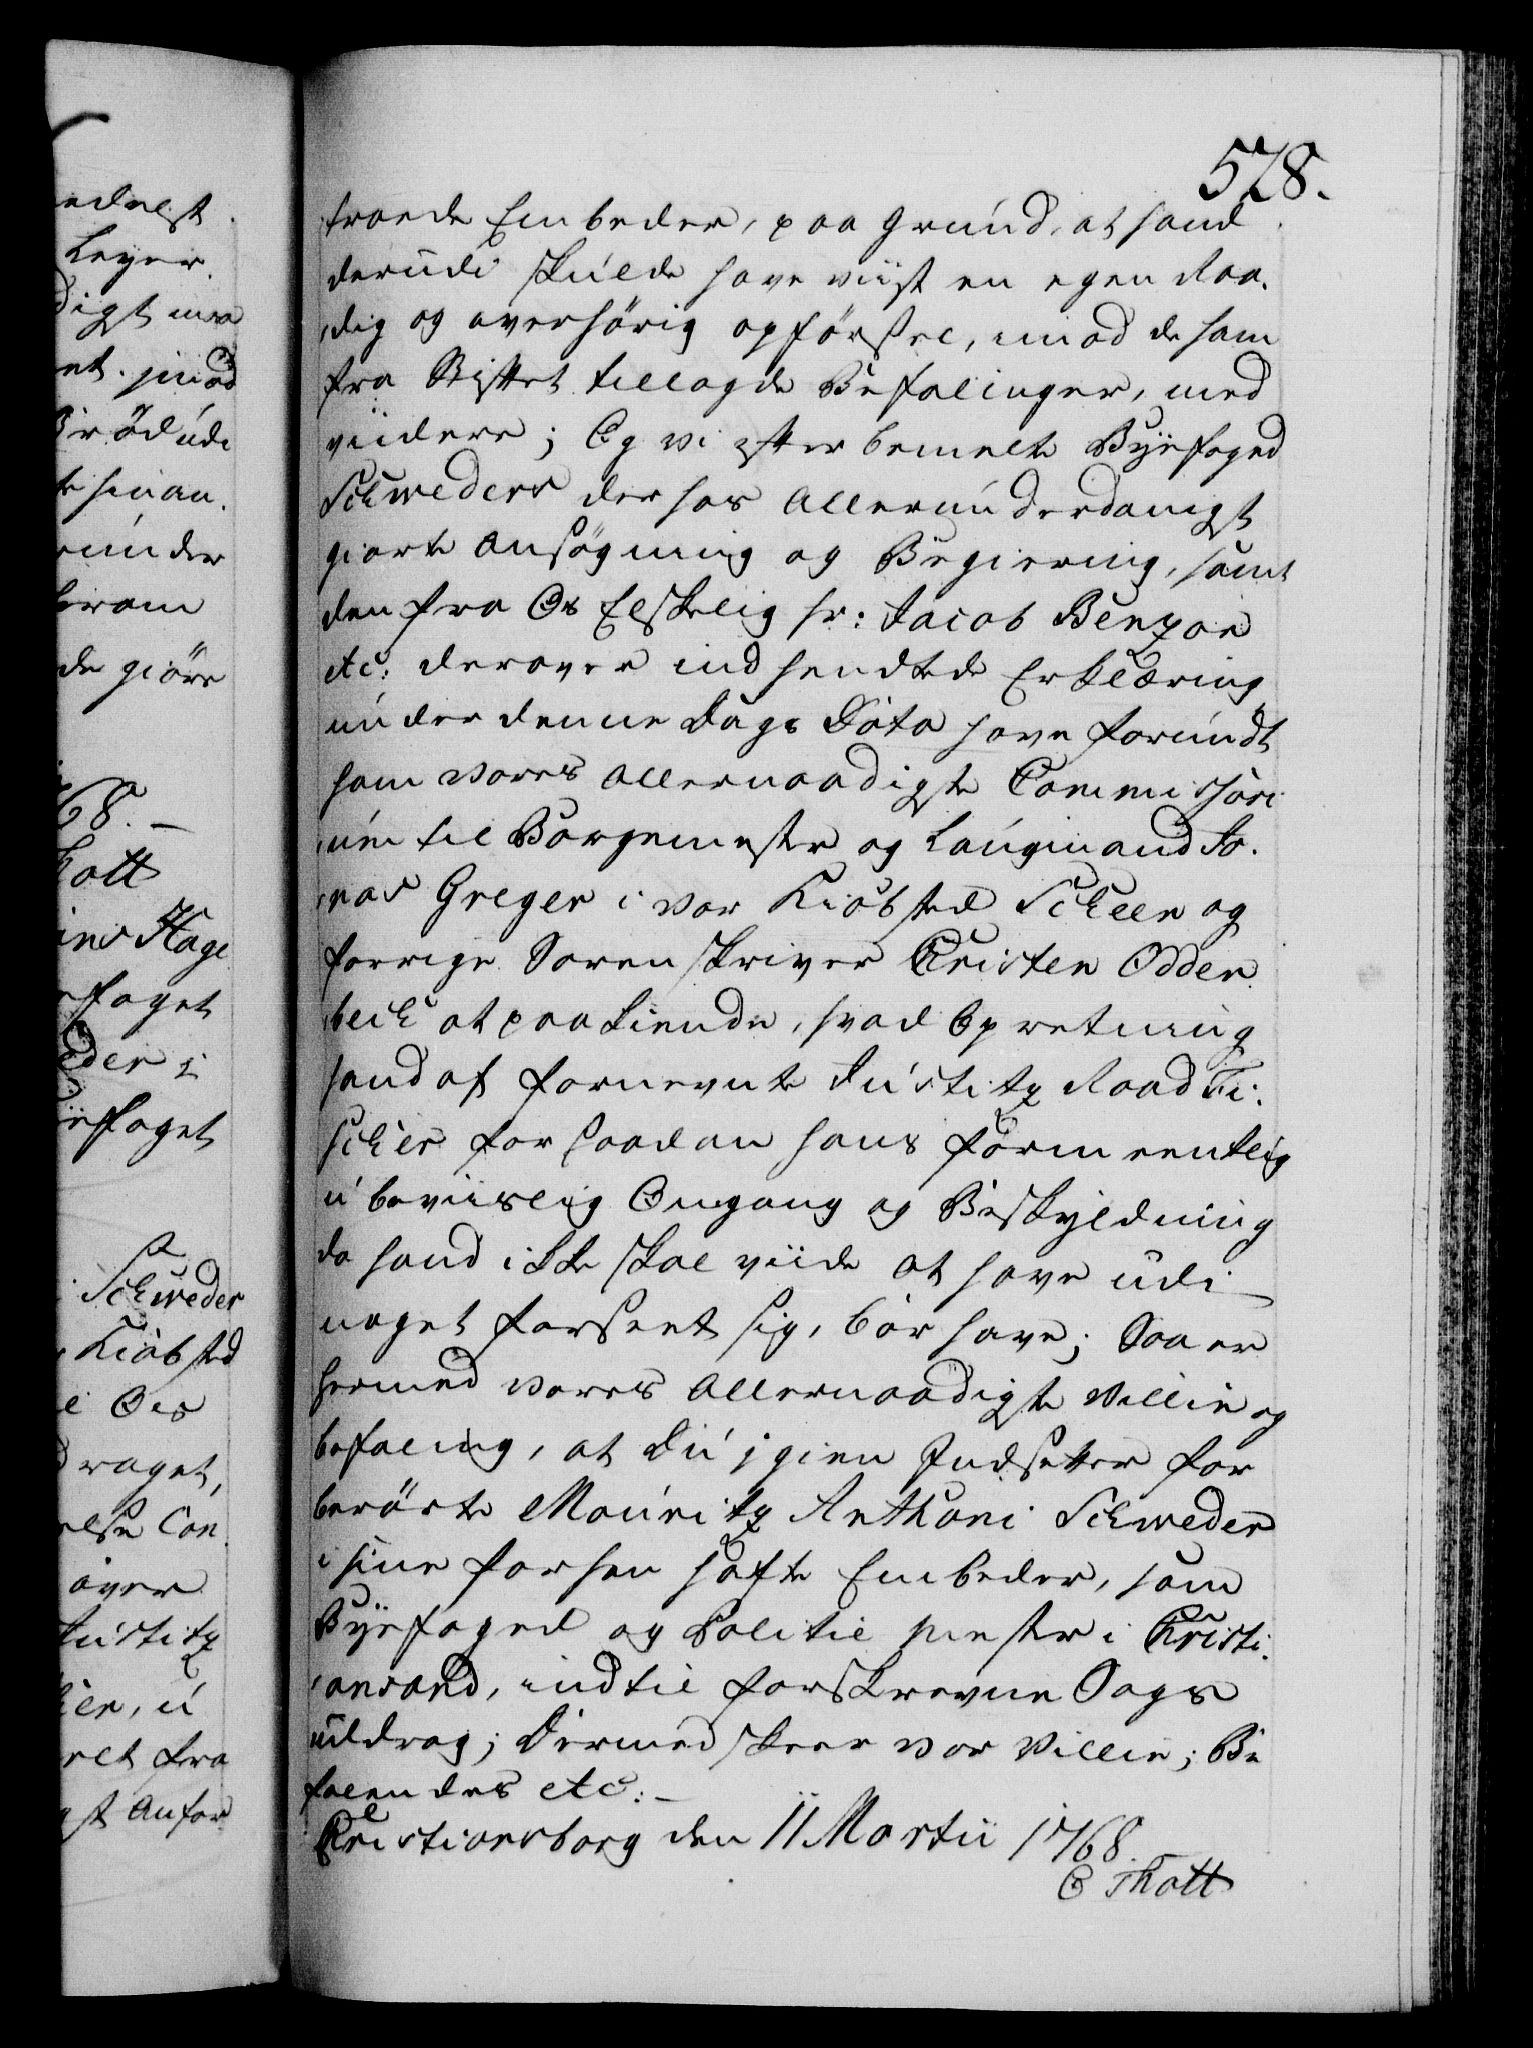 578.
troede Embeder, paa Grund, at hand
derudi skulde have viist en egen Raa¬
dig og overhörig opförsel, imod de ham
fra Stiftet tillagde Befalinger, med
viidere; Og vi efter bemelte Byefoged
Schweders der hos allerunderdanigst
giorte Ansögning og Begiering, samt
den fra Os Elskelig Hr: Jacob Benzon
etc: derover indsendte Erklæring
under denne Dags Dato have forundt
ham vores allernaadigste Commissori¬
um til Borgemester og Laugmand Jo¬
nas Greger i vor Kiöbsted Scheen og
forrige Sorenskriver Christen Odder¬
bech at paakiende, hvad Opretning
hand af fornevnte Justitz Raad Fi¬
scher for saadan hans formeentlig
ubeviislig Omgang og Beskyldning
da hand ikke skal viide at have udi
noget forseet sig, bör have; Saa er
hermed vores allernaadigste Villie og
befaling, at Du igien Indsetter for
berörte Mouritz Anthoni Schweder
i sine forhen hafte Embeder, som
Byefoged og Politie mester i Christi¬
ansand, indtil forskrevne Sags
uddrag; Dermed skeer vor Villie; Be
falendes etc:
Christiansborg den 11 Martii 1768.
O Thott
edelst
Leyer
digt maa
et. imod
under
de giöre
68.
hott
ins Hage
foget
eder i
efoget
Schweder
Kiöbsted
l Os
draget,
else Con
over
Justitz
er, u
ret fra
gst Anfor